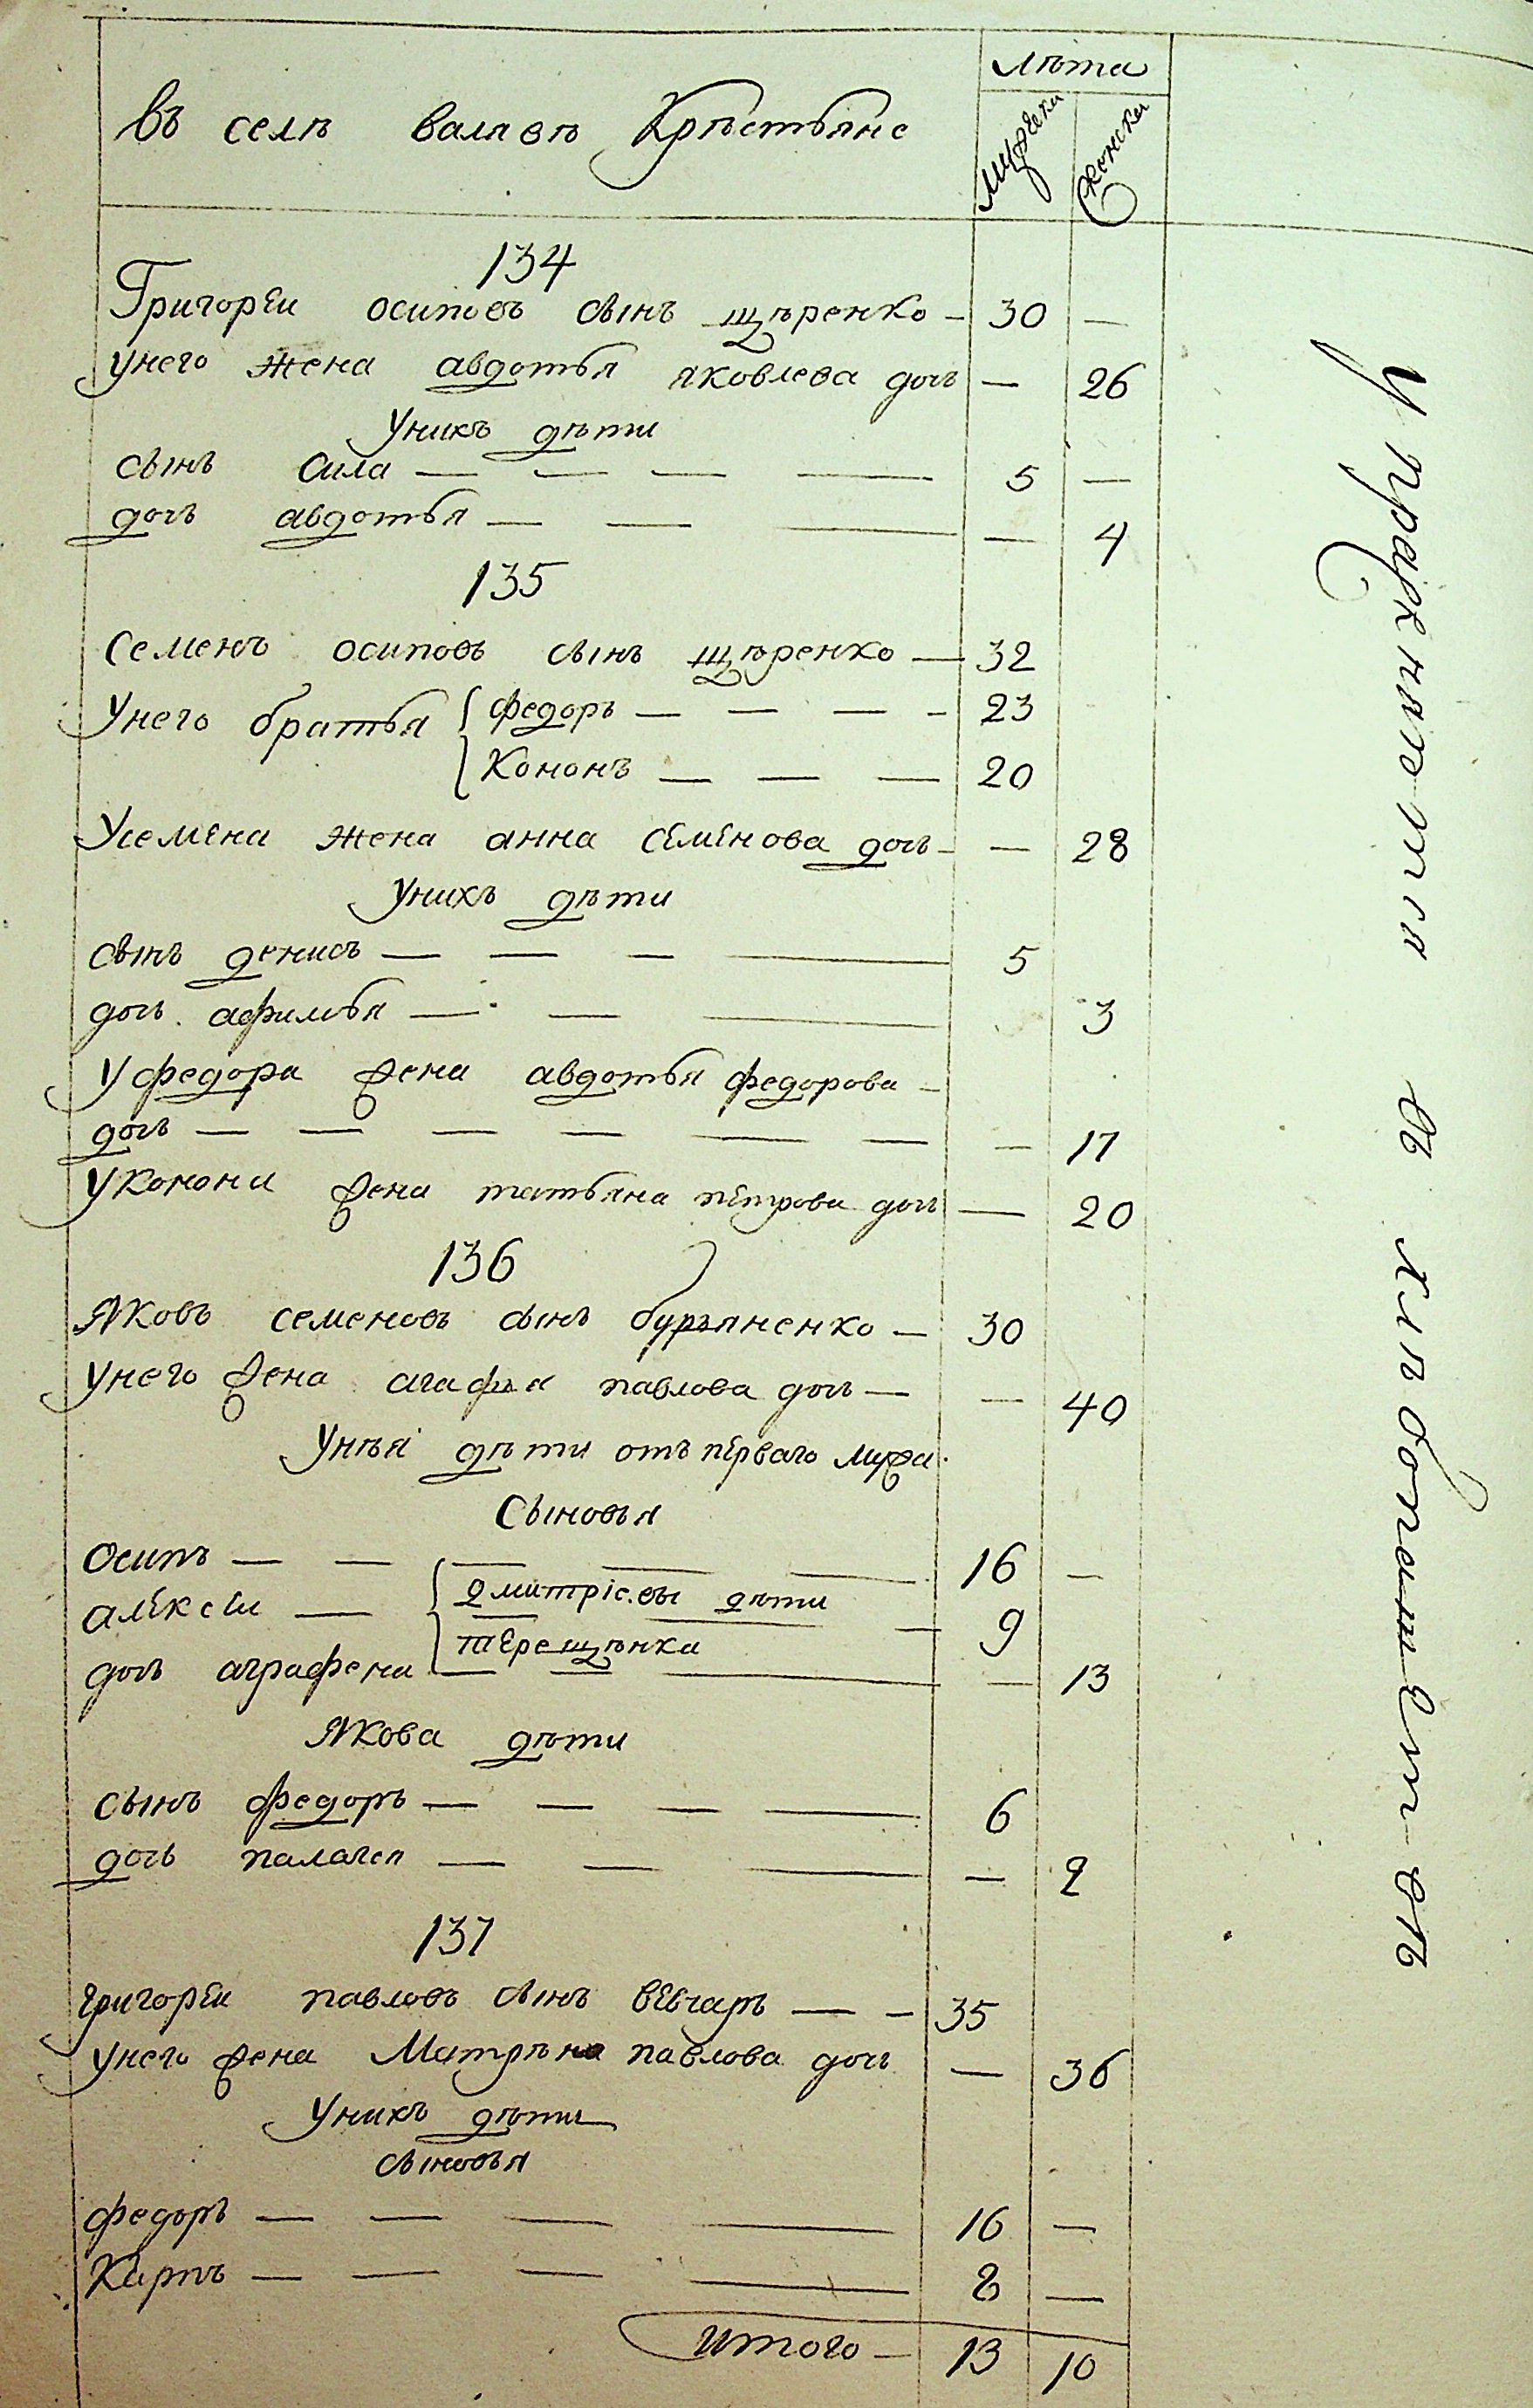 лѣта
въ селѣ валявѣ Крѣстьяне
мужеска женска
134
Григорей осиповъ сынъ щѣренко — 30 —
унего жена авдотья яковлева дочь — 26
Унихъ дѣти
сынъ Сила — — — — 5 —
дочь авдотья — — — — 4
135
Семенъ осиповъ сынъ щѣренко — 32
Унего братья { федоръ — — — - 23
Кононъ — — — 20
Усемена жена анна семенова дочь - — 28
Унихъ дѣти
сынъ денисъ — — — — 5
дочь афимья — — — 3
У федора жена авдотья федорова -
дочь — — — — — — — 17
У Конона жена татьяна петрова дочь — 20
136
Яковъ семеновъ сынъ буръяненко — 30
Унего жена агафья павлова дочь — — 40
Унѣя дѣти отъ перваго мужа
Сыновья
Осипъ — — — — — 16 —
алексеи — { дмитріевы дѣти — 9
терещѣнка
дочь аграфена — — — — 13
Якова дѣти
сынъ федоръ — — — — 6
дочь палагея — — — — 2
137
григореи павловъ сынъ вевчаръ — - 35
унего жена Матрѣна павлова дочь — 36
Унихъ дѣти
сыновья
федоръ — — — — 16 —
Карпъ — — — — 8 —
итого — 13 10
упражняются въ хлѣбопашествѣ